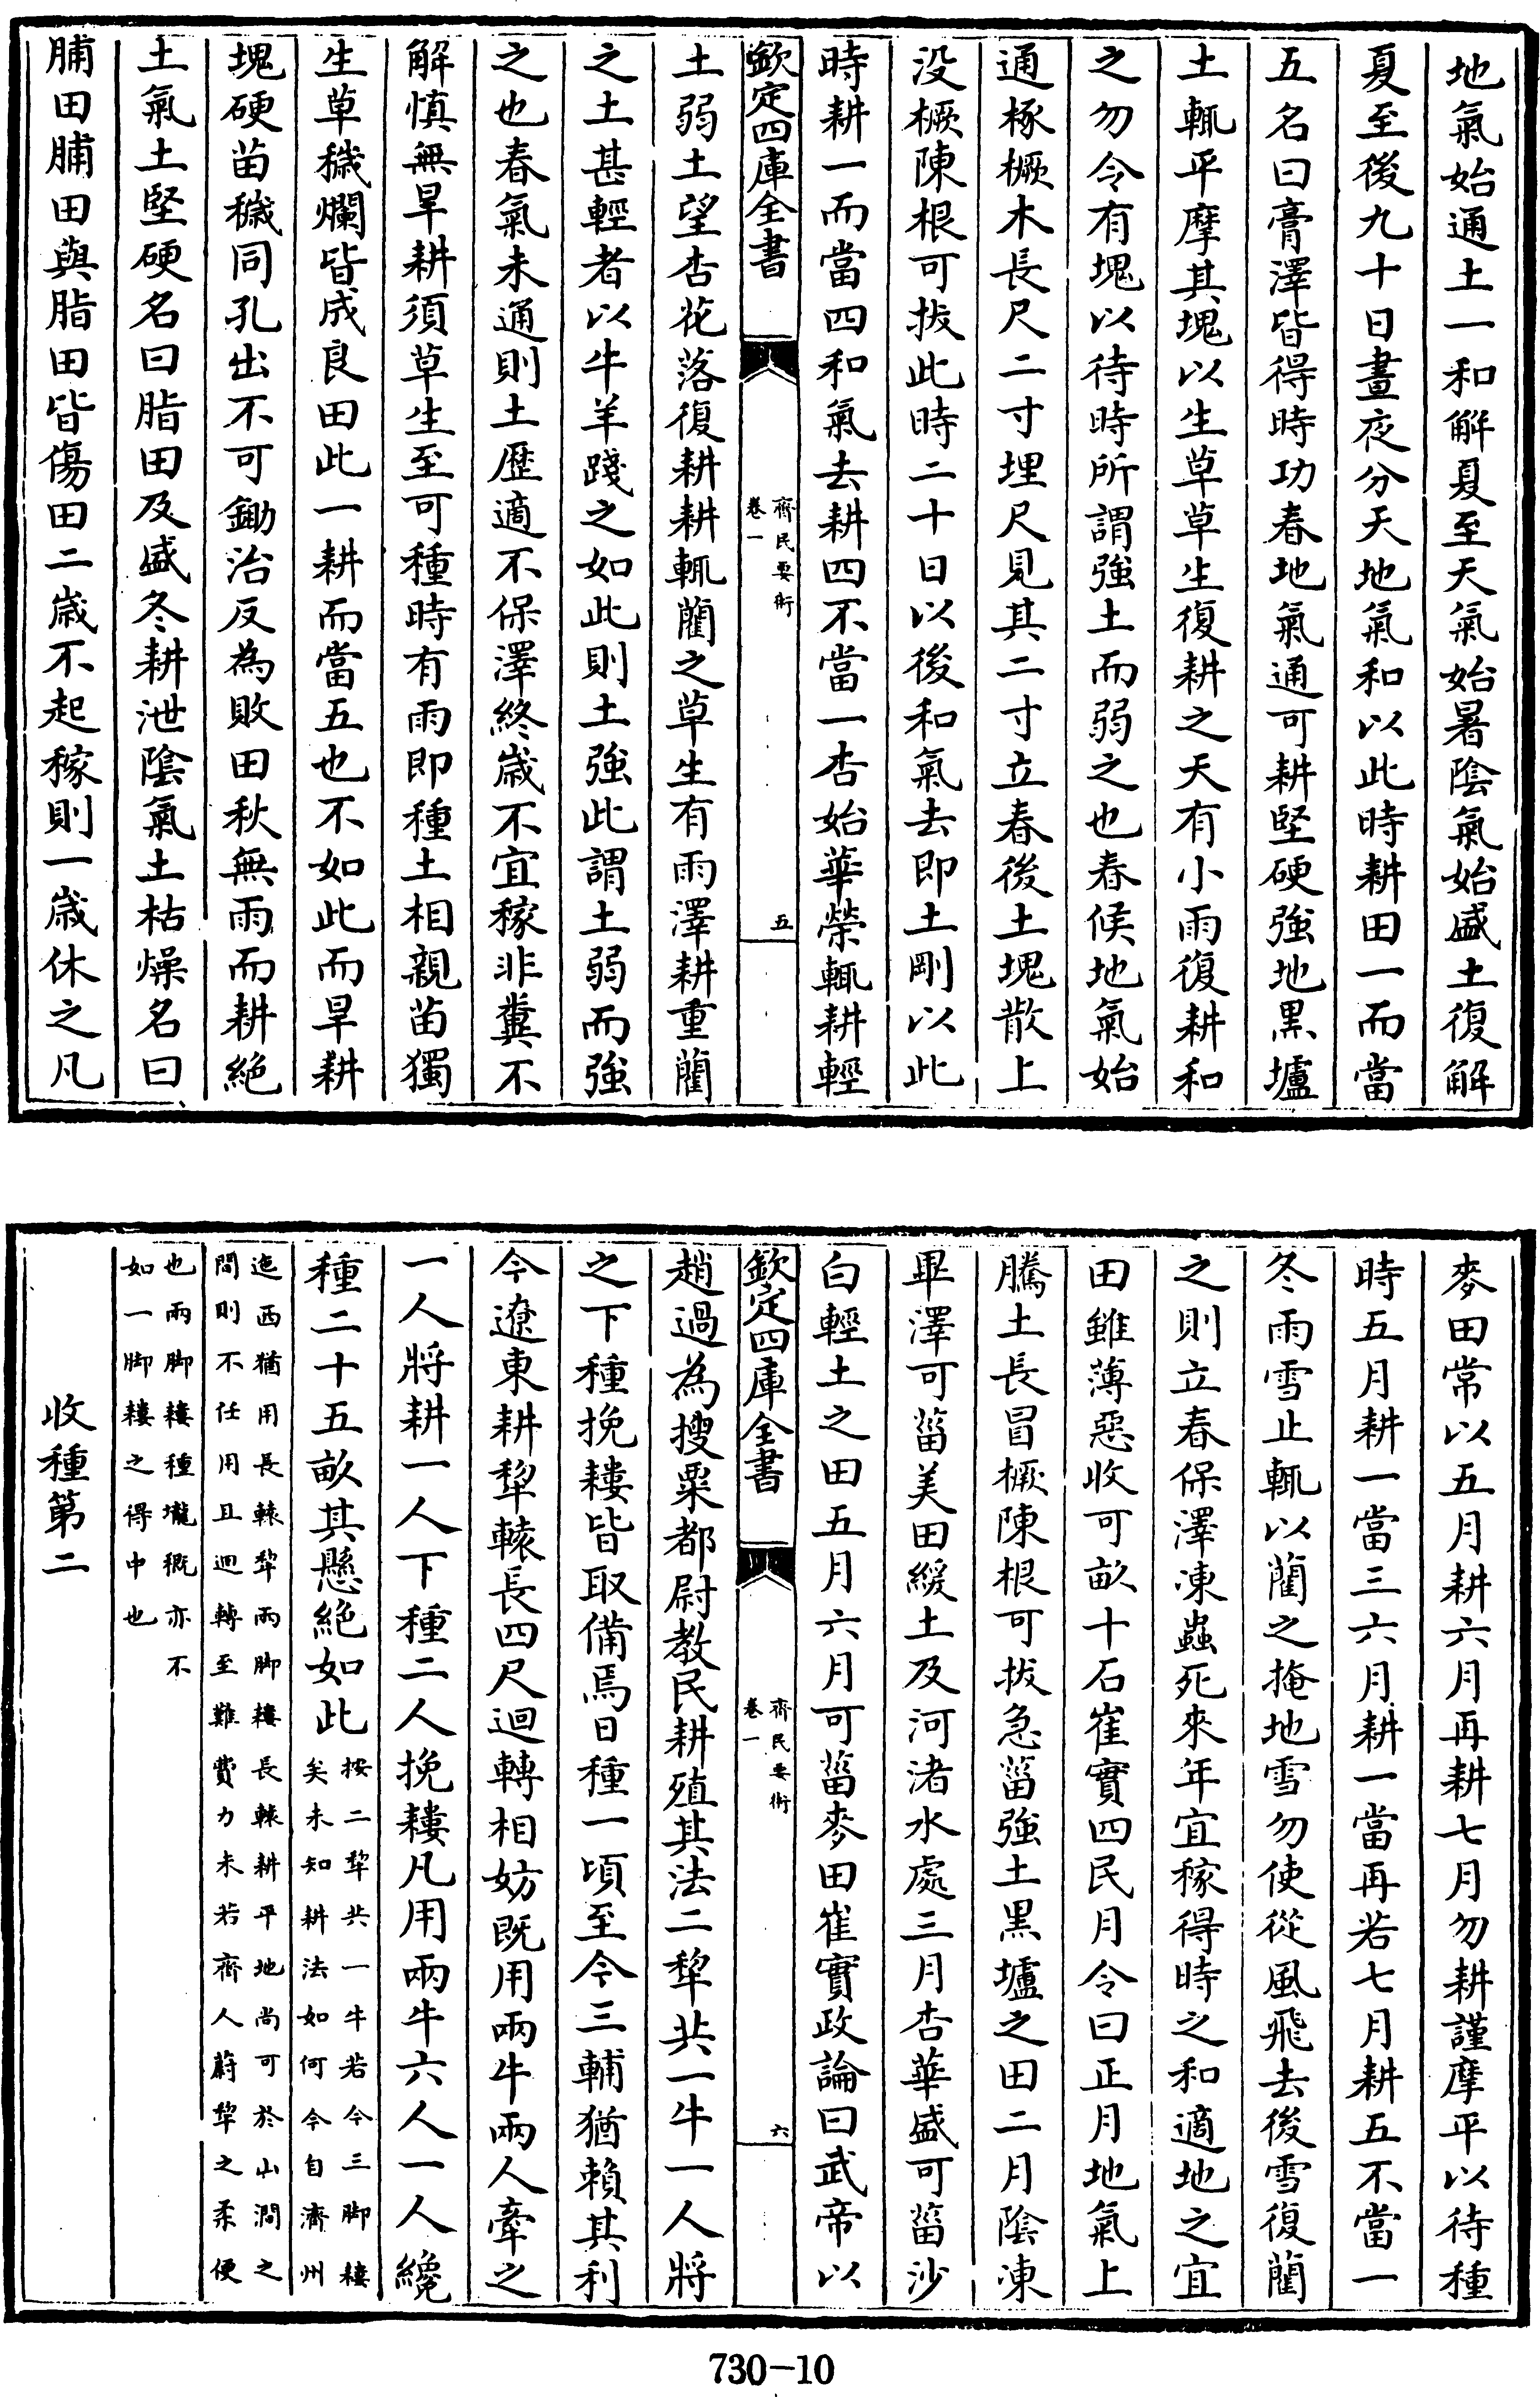 地氣始通土一和解夏至天氣始暑陰氣始盛土復解
夏至後九十日晝夜分天地氣和以此時耕田一而當
五名曰膏澤皆得時功春地氣通可耕堅硬強地黑壚
土輒平摩其塊以生草草生復耕之天有小雨復耕和
之勿令有塊以待時所謂強土而弱之也春候地氣始
通椓橛木長尺二寸埋尺見其二寸立春後土塊散上
没橛陳根可拔此時二十日以後和氣去即土剛以此
時耕一而當四和氣去耕四不當一杏始華榮輒耕輕
欽定四庫全書
齊民要術
卷一
五
土弱土望杏花落復耕耕輒藺之草生有雨澤耕重藺
之土甚輕者以牛羊踐之如此則土強此謂土弱而強
之也春氣未通則土歴適不保澤終歳不宜稼非糞不
解慎無旱耕須草生至可種時有雨即種土相親苗獨
生草穢爛皆成良田此一耕而當五也不如此而旱耕
塊硬苗穢同孔出不可鋤治反為敗田秋無雨而耕絶
土氣土堅硬名曰脂田及盛冬耕泄陰氣土枯燥名曰
脯田脯田與脂田皆傷田二歳不起稼則一歳休之凡
麥田常以五月耕六月再耕七月勿耕謹摩平以待種
時五月耕一當三六月耕一當再若七月耕五不當一
冬雨雪止輒以藺之掩地雪勿使從風飛去後雪復藺
之則立春保澤凍蟲死來年宜稼得時之和適地之宜
田雖薄惡收可畝十石崔實四民月令曰正月地氣上
騰土長冒橛陳根可拔急菑強土黑壚之田二月陰凍
畢澤可菑美田緩土及河渚水處三月杏華盛可菑沙
白輕土之田五月六月可菑麥田崔實政論曰武帝以
欽定四庫全書
齊民要術
卷一
六
趙過為搜粟都尉教民耕殖其法二犂共一牛一人將
之下種挽耬皆取備焉日種一頃至今三輔猶賴其利
今遼東耕犂轅長四尺迴轉相妨既用兩牛兩人牽之
一人將耕一人下種二人挽耬凡用兩牛六人一人纔
種二十五畝其懸絶如此
按二犂共一牛若今三脚耬
矣未知耕法如何今自濟州
迤西猶用長轅犂兩脚耬長轅耕平地尚可於山澗之
間則不任用且迴轉至難費力未若齊人蔚犂之柔便
也兩脚耬種壠穊亦不
如一脚耬之得中也
收種第二
730-10